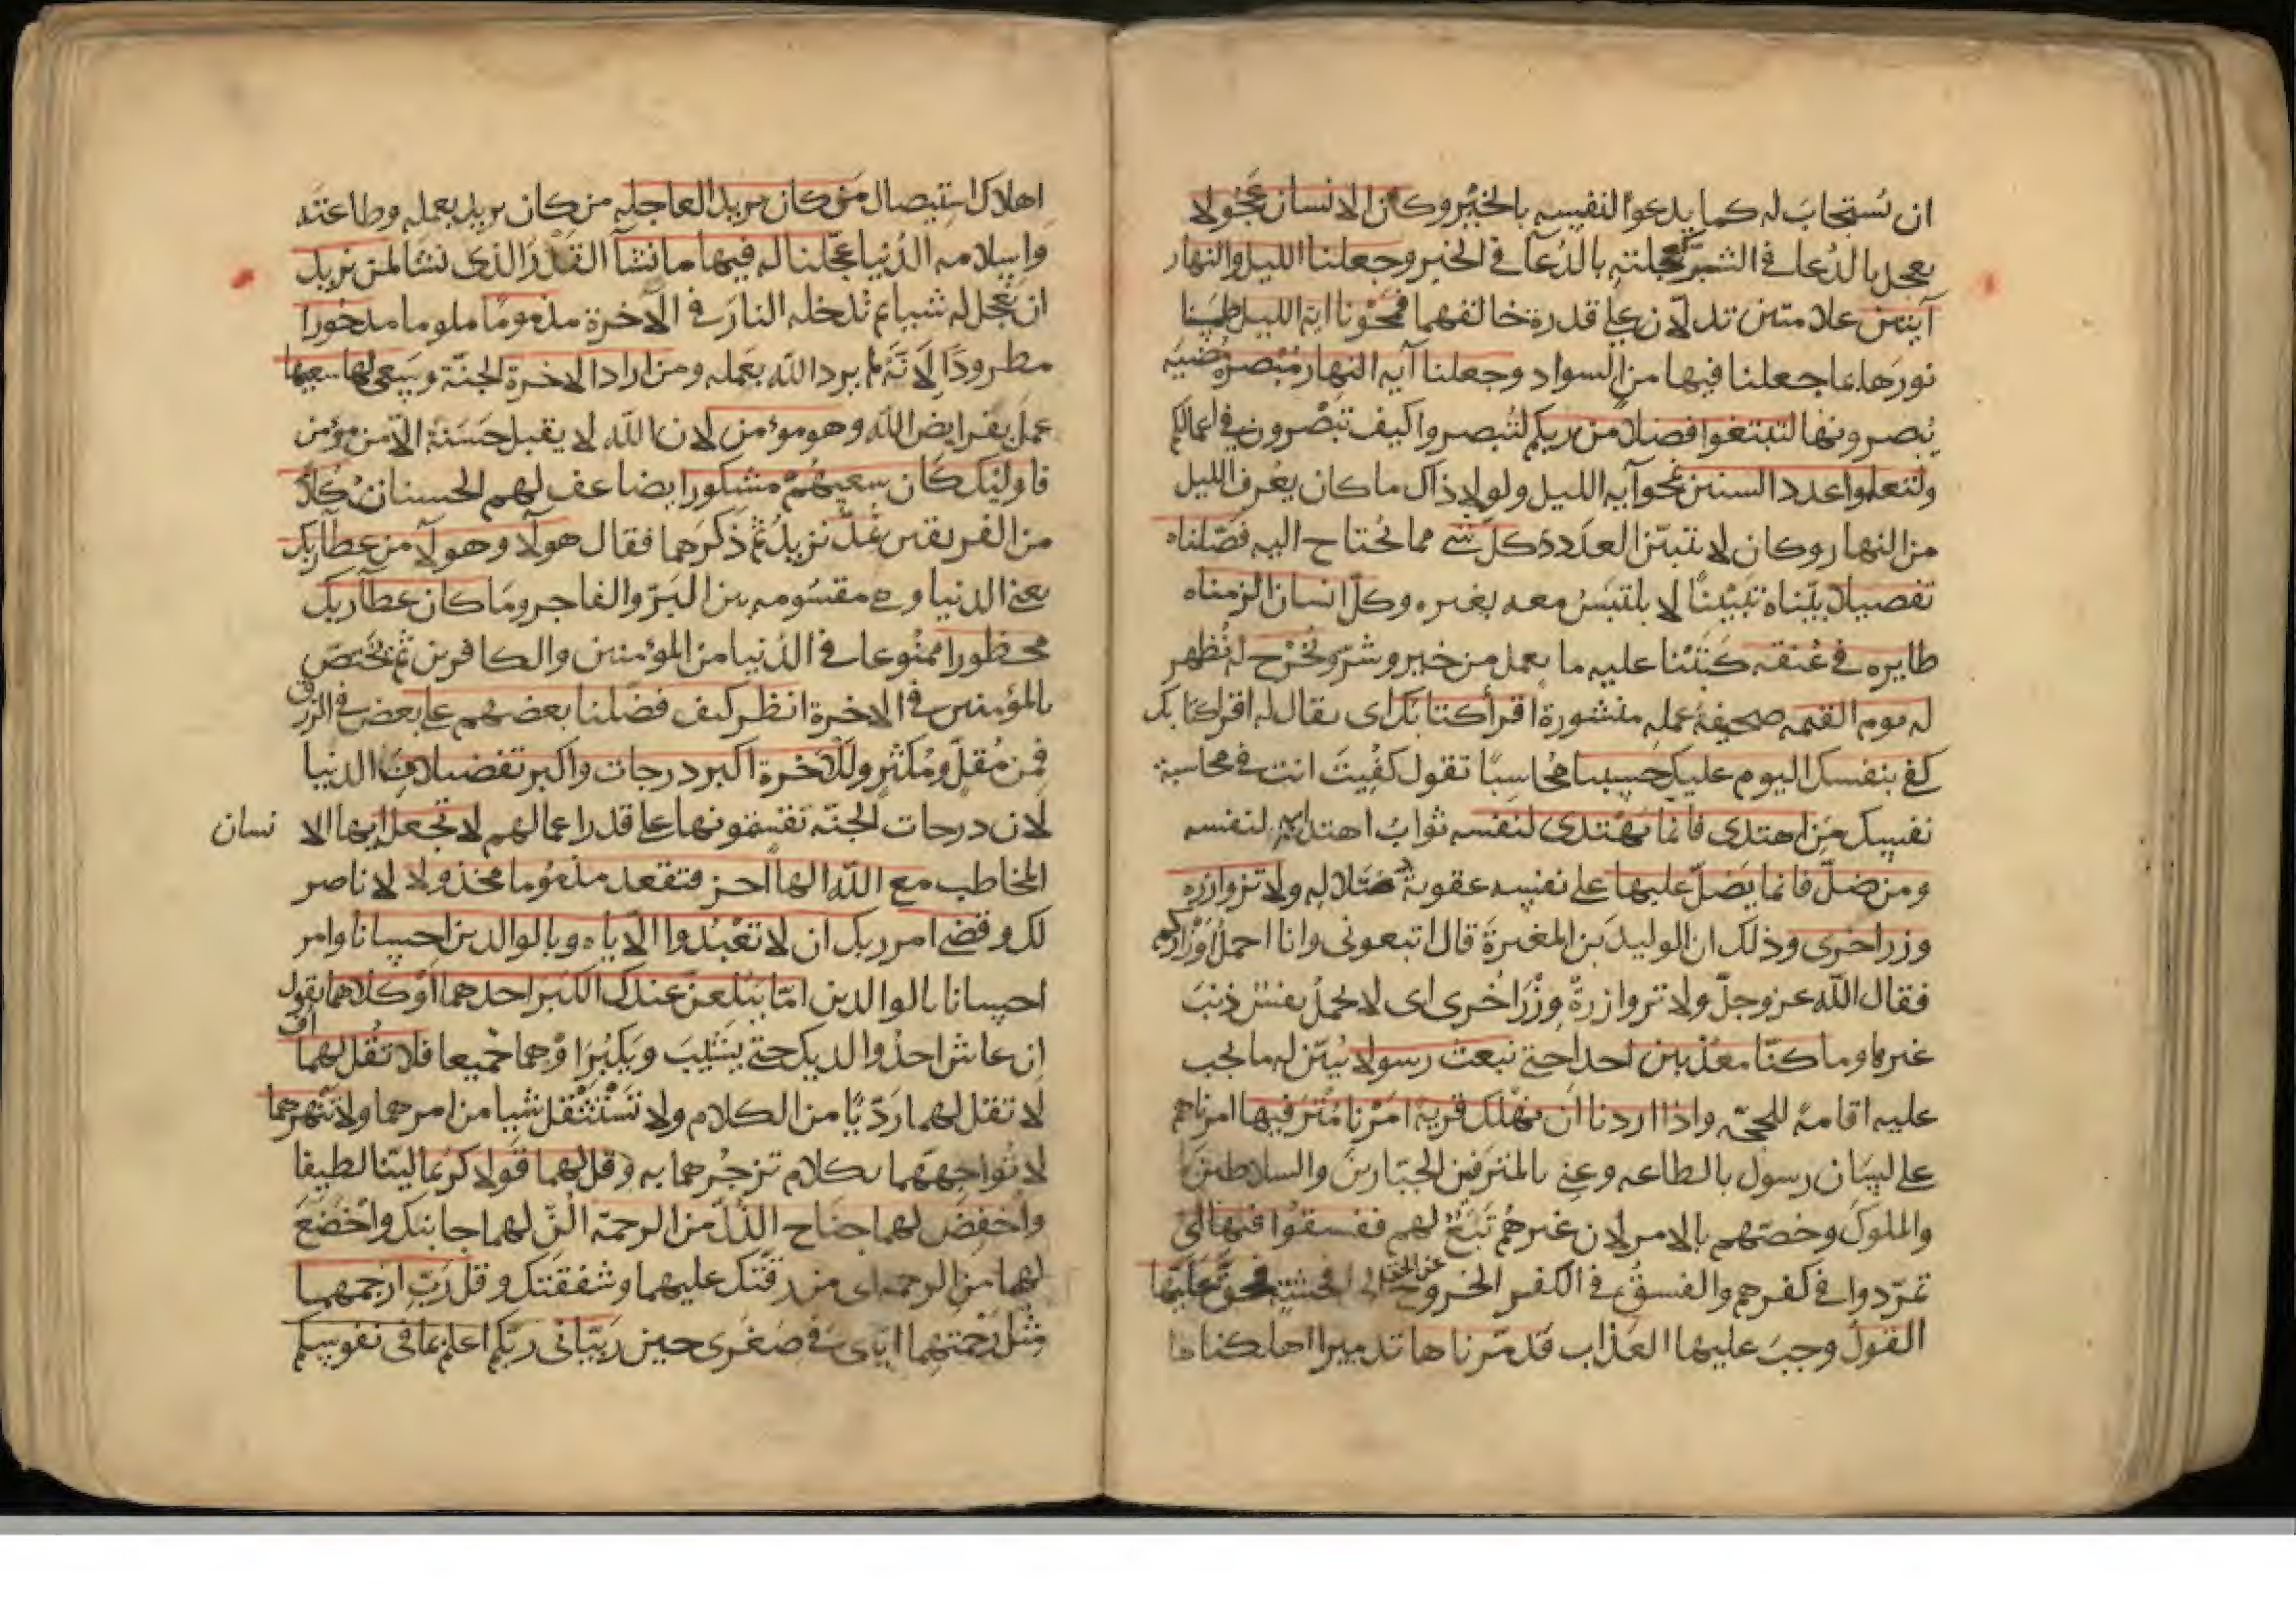 ان نستجاب له كما يدعوا لنفسه بالخير وكان الانسان عجولا
يعجل بالدعا في الشر كعجلته بالدعآ في الخير وجعلنا الليل والنهار
آيتين علامتين تدلان على قدرة خالقهما فمحونا اية الليل طمسنا
نورها بما جعلنا فيها من السواد وجعلنا آية النهار مبصرة مضيه
يبصرون بها لتبتغوا فضلا من ربكم لتبصروا كيف تبصرون في اعمالكم
ولتعلموا عدد السنين بمحو آية الليل ولولا ذاك ما كان يعرف الليل
من النهار وكان لا يتبين العدد وكل شي مما يحتاج اليه فصلناه
تفصيلا بيناه تبيينا لا يلتبس معه بغيره وكل انسان الزمناه
طايره في عنقه كتبنا عليه ما يعمل من خير وشر ونخرج له نظهر
له يوم القيمه صحيفة عمله منشورة اقرأ كتابك اى يقال له اقرا كتابك
كفى بنفسك اليوم عليك حسيبا محاسبا تقول كفيت انت في محاسبة
نفسك من اهتدى فانما يهتدى لنفسه ثواب اهتدايه لنفسه
ومن ضل فانما يضل عليها على نفسه عقوبة ضلاله ولا تزر وازرة
وزر اخرى وذلك ان الوليد بن المغيرة قال اتبعونى وانا احمل اوزاركم
فقال الله عز وجل ولا تزر وازرة وزر اخرى اى لا تحمل نفس ذنب
غيرها وما كنا معذبين احدا حتى نبعث رسولا يبين له ما يجب
عليه اقامة للحجه واذا اردنا ان نهلك قرية امرنا مترفيها امرناهم
على لسان رسول بالطاعه وعنى بالمترفين الجبارين والسلاطين
والملوك وخصهم بالامر لان غيرهم تبع لهم ففسقوا فيها اى
تمردوا في كفرهم والفسق في الكفر الخروج الى افحشه فحق عليها
القول وجب عليها العذاب فدمرناها تدميرا اهلكناها
اهلاك استيصال من كان يريد العاجله من كان يريد بعمله وطاعته
واسلامه الدنيا عجلنا له فيها ما نشآ القدر الذى نشا لمن نريد
ان نعجل له شيا ثم ندخله النار في الآخرة مذموما ملوما مدحورا
مطرودا لانه لم يرد الله بعمله ومن اراد الاخرة الجنة وسعى لها سعيها
عمل بفرايض الله وهو مؤمن لان الله لا يقبل حسنة الا من مؤمن
فاوليك كان سعيهم مشكورا يضاعف لهم الحسنات كلا
من الفريقين نمد نزيد ثم ذكرهما فقال هولآ وهولآ من عطآ ربك
يعنى الدنيا وهى مقسومه بين البر والفاجر وما كان عطآ ربك
محظورا ممنوعا في الدنيا من المؤمنين والكافرين ثم يختص
بالمؤمنين في الاخرة انظر كيف فضلنا بعضهم على بعض في الرزق
فمن مقل ومكثر وللآخرة اكبر درجات واكبر تفضيلا من الدنيا
لان درجات الجنة تقتسمونها على قدر اعمالهم لا تجعل ايها الا نسان
المخاطب مع الله الها آخر فتقعد مذموما مخذولا لا ناصر
لك وقضى امر ربك ان لا تعبدوا الا اياه وبالوالدين احسانا وامر
احسانا بالوالدين اما يبلغن عندك الكبر احدهما او كلاهما يقول
ان عاش احد والديك حتى يشيب ويكبر او هما جميعا فلا تقل لهما اف
لا تقل لهما رديا من الكلام ولا تستثقل شيا من امرهما ولا تنهرهما
لا تواجههما بكلام تزجرهما به وقل لهما قولا كريما لينا لطيفا
واخفض لهما جناح الذل من الرحمة الن لهما جانبك واخضع
لهما من الرحمه اى من رقتك عليهما وشفقتك وقل رب ارحمهما
مثل رحمتهما اياى في صغرى حين ربيانى ربكم اعلم بما فى نفوسكم